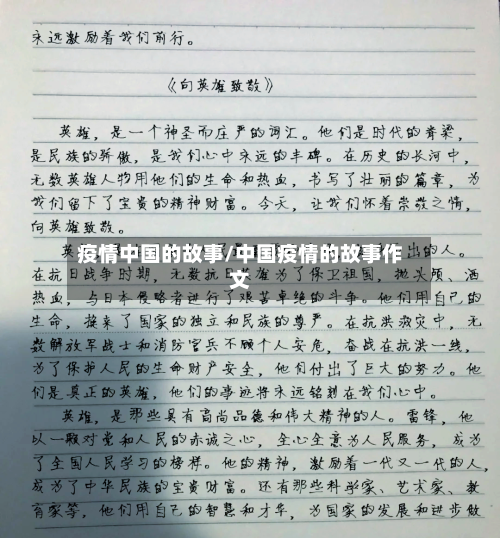 永远激励着我们前行。
《向英雄致敬》
英雄，是一个神圣而庄严的词汇。他们是时代的脊梁，
是民族的骄傲，是我们心中永远的丰碑。在历史的长河中，
无数英雄人物用他们的生命和热血，书写了壮丽的篇章，为
我们留下了宝贵的精神财富。今天，让我们怀着崇敬之情，
向英雄致敬。
英 出的人。
疫情中国的故事/中国疫情的故事作
文
在抗日战争时期，无数抗 英雄为了保卫祖国，抛头颅、洒
热血，与日本侵略者进行了艰苦卓绝的斗争。他们用自己的
生命，换来了国家的独立和民族的尊严。在抗洪救灾中，无
数解放军战士和消防官兵不顾个人安危，奋战在抗洪一线，
为了保护人民的生命财产安全，他们付出了巨大的努力。他
们是真正的英雄，他们的事迹将永远铭刻在我们心中。
英雄，是那些具有高尚品德和伟大精神的人。雷锋，他
以一颗对党和人民的赤诚之心，全心全意为人民服务，成为
了全国人民学习的榜样。他的精神，激励着一代又一代的人，
成为了中华民族的宝贵财富。还有那些科学家、艺术家、教
育家等，他们用自己的智慧和才华，为国家的发展和进步做